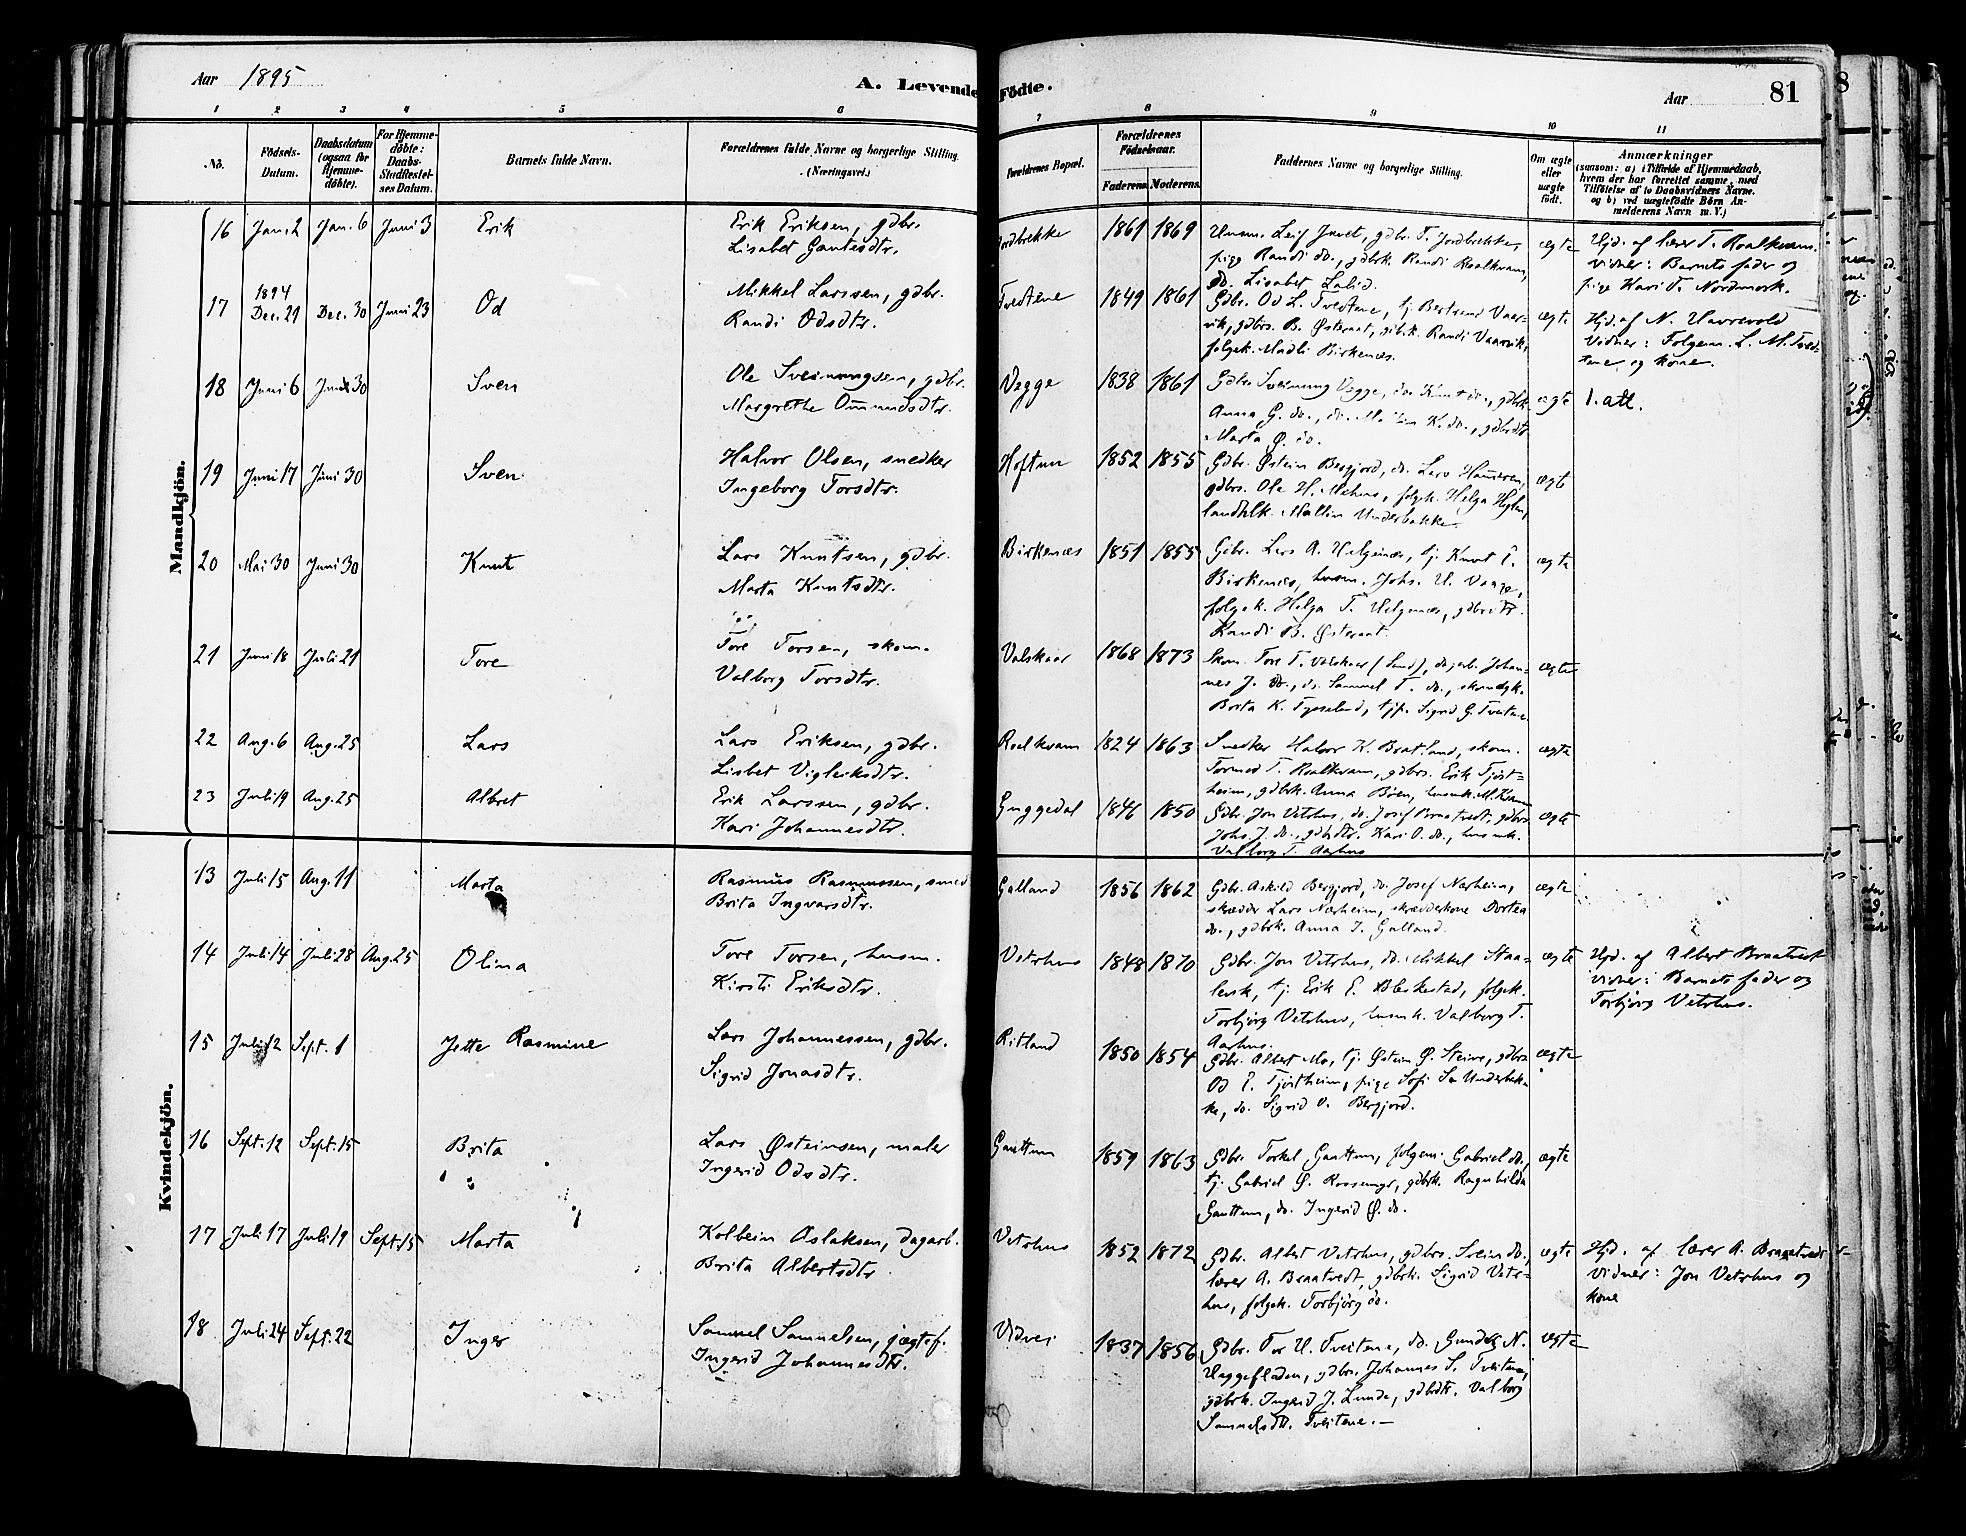 Aar 1895
A. Levende Födte.
Aar
81
8
1 2 3 4 5 6 7 8 9 10 11
No.
Födsels-Datum.
Daabsdatum (ogsaa for Hjemme-döbte).
For Hjemme-döbte: Daabs-Stadfæstel-ses Datum.
Barnets fulde Navn.
Forældrenes fulde Navne og borgerlige Stilling. (Næringsvei.)
Forældrenes Bopæl.
Forældrenes Födselsaar.
Faderens Moderens
Faddernes Navne og borgerlige Stilling.
Om ægte eller uægte födt.
Anmærkninger
(saasom: a) i Tilfælde af Hjemmedaab,
hvem der har forrettet samme, med
Tilföielse af to Daabsvidners Navne.
og b) ved uægtefödte Börn An-
melderens Navn m. V.)
Mandkjön.
16 Jan. 2 Jan. 6 Juni 3 Erik
Erik Eriksen, gdbr.
Lisabet Gautesdtr.
Jordbrekke 1861 1869
Husm. Leif Juvet, gdbr. T. Jordbrekke,
pige Randi do., gdbrk. Randi Roalkvam,
do. Lisabet
ægte
Hjd. af lærer T. Roalkvam.
Vidner: Barnets fader og
pige Kari T. Nordmork.
17 1894 Dec. 21 Dec. 30 Juni 23 Od
Mikkel Larssen, gdbr.
Randi Odsdtr.
Tveitene 1849 1861
Gdbr. Od L. Tveitene, tj. Bertrand Vaar-
vik, gdbrs. B. Østeraat, gdbrk. Randi Vaarvik,
folgek. Madli Birkenæs.
ægte
Hjd. af N. Havrevold
Vidner: Folgem. L. M. Tvei-
tene og kone.
18 Juni 6 Juni 30 Sven
Ole Sveinungsen, gdbr.
Margrethe Ommundsdtr.
Vegge 1838 1861
Gdbr. Sveinung Vegge, do. Knut do., gdbrk.
Anna G. do., do. K. do., gdbrdtr.
Marta Ø. do.
ægte
1. att.
19 Juni 17 Juni 30 Sven
Halvor Olsen, snedker
Ingeborg Torsdtr.
Hoftun 1852 1855
Gdbr. Østein Bergjord, do. Lars Hameren,
gdbrs. Ole H. Mehus, folgk. Helga
landhlk. Mallin Underbakke.
ægte
20 Mai 30 Juni 30 Knut
Lars Knutsen, gdbr.
Marta Knutsdtr.
Birkenæs 1851 1855
Gdbr. Lars A. Helgenæs, tj. Knut
Birkenæs, husm. Johs. H. Vange,
folgek. Helga T. Helgenæs, gdbrdtr.
Randi B. Østeraat.
ægte
21 Juni 18 Juli 21 Tore
Tore Torsen, skom.
Valborg Torsdtr.
Valskaar 1868 1873
Skom. Tore T. Valskaar (Sand), dagarb. Johan-
nes J. do., do. Samuel T. do.,
Brita K. Tysseland, tjp. Sigrid G. Tveitene
ægte
22 Aug. 6 Aug. 25 Lars
Lars Eriksen, gdbr.
Lisbet Vigleiksdtr.
Roalkvam 1824 1863
Snedker Halvor K. Bratland, skom.
Tormod T. Roalkvam, gdbrs. Erik Tjöst-
heim, gdbrk. Anna Böen, husmk. M. Kvam
ægte
23 Juli 9 Aug. 25 Albret
Erik Larssen, gdbr.
Kari Johannesdtr.
Guggedal 1846 1850
Gdbr. Jon Vetrhus, do. Josef Braatvedt, gdbrs.
Johs. J. do., gdbrdtr. Kari O. do., husmk.
Valborg T. Aarhus
ægte
Kvindekjön.
13 Juli 15 Aug. 11 Marta
Rasmus Rasmussen, smed
Brita Ingvarsdtr.
Galland 1856 1862
Gdbr. Askild Bergjord, do. Josef Nærheim,
skrædder Lars Nærheim, skrædderkone Dortea
do., gdbrk. Anna I. Galland.
ægte
14 Juli 14 Juli 28 Aug. 25 Olina
Tore Torsen, husm.
Kirsti Eriksdtr.
Vetrhus 1848 1870
Gdbr. Jon Vetrhus, do. Mikkel Staa-
levik, tj. Erik E. Bleskestad, folgek.
Torbjörg Vetrhus, husmk. Valborg T.
Aarhus.
ægte
Hjd. af Albert Braatvedt
Vidner: Barnets fader og
Torbjörg Vetrhus.
15 Juli 12 Sept. 1 Jette Rasmine
Lars Johannessen, gdbr.
Sigrid Jonasdtr.
Ritland 1850 1854
Gdbr. Albert Mo, tj. Østein Ø. Steine, gdbrs.
Od Tjöstheim, pige Sofi Underbak-
ke, do. Sigrid O. Bergjord.
ægte
16 Sept. 12 Sept. 15 Brita
Lars Østeinsen, maler
Ingerid Odsdtr.
Gauttun 1859 1863
Gdbr. Torkel Gauttun, folgem. Gabriel do.,
tj. Gabriel Ø. gdbrk. Ragnhilda
Gauttun, do. Ingerid Ø. do.
ægte
17 Juli 17 Juli 19 Sept. 15 Marta
Kolbein Aslaksen, dagarb.
Brita Albertsdtr.
Vetrhus 1852 1872
Gdbr. Albert Vetrhus, gdbrs. Svein do.,
lærer A. Braatvedt, gdbrk. Sigrid Vetr-
hus, folgek. Torbjörg do.
ægte
Hjd. af lærer A. Braatvedt
Vidner: Jon Vetrhus og
kone
18 Juli 24 Sept. 22 Inger
Samuel Samuelsen, jægtef.
Ingerid Johannesdtr.
Vidvei 1837 1856
Gdbr. Tor H. Tveitene, do. N.
Haggefladen, gdbrs. Johannes S. Tveitene,
gdbrk. Ingerid J. Lunde, gdbrdtr. Valborg
Samuelsdtr. Tveitene.
ægte